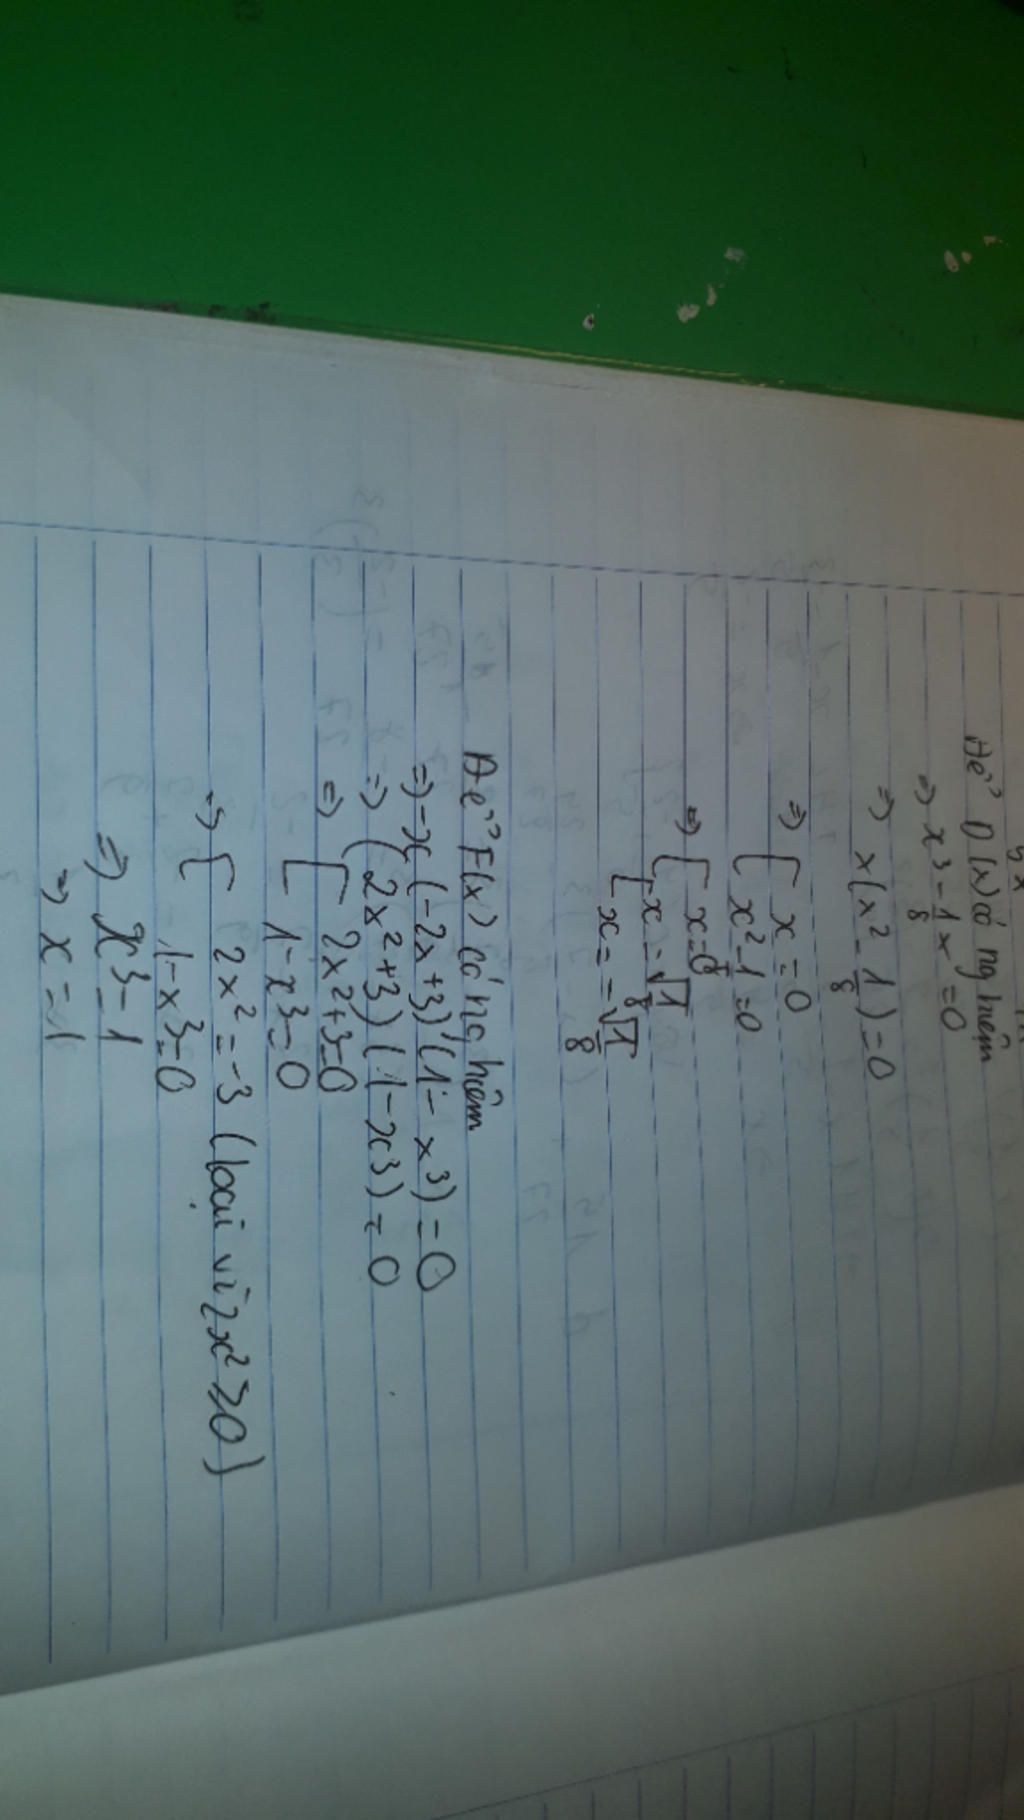 5x
Để D(x) có nghiệm
=> x³ - 1/8 x = 0
=> x(x² - 1/8) = 0
=> [ x = 0
[ x² - 1/8 = 0
=> [ x = 0
[ x = √1/8
x = -√1/8
Để F(x) có nghiệm
=> -x(-2x+3)(1-x³) = 0
=> (2x²+3)(1-x³) = 0
=> [ 2x²+3=0
1-x³=0
=> [ 2x² = -3 (loại vì 2x² ≥ 0)
1-x³=0
=> x³=1
=> x=1